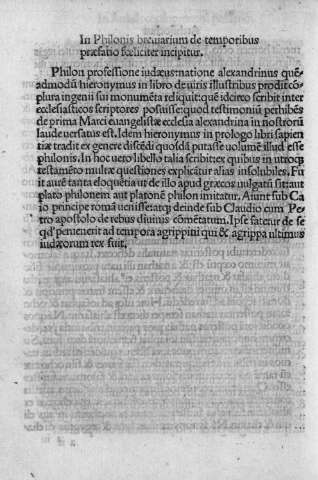 In Philonis breuiarium de temporibus
præfatio fœliciter incipitur.
Philon professione iudæus: natione alexandrinus quē-
admodū hieronymus in libro de uiris illustribus prodit cō-
plura ingenii sui monumēta reliquit: quē idcirco scribit inter
ecclesiasticos scriptores posuisse: quod testimoniū perhibēs
de prima Marci euangelistæ ecclesia alexandrina in nostrorū
laude uersatus est. Idem hieronymus in prologo libri sapien
tiæ tradit ex genere discēdi quosdā putasse uolumē illud esse
philonis. In hoc uero libello talia scribit: ex quibus in utroq;
testamēto multæ quæstiones explicātur alias insolubiles. Fu
it autē tanta eloquētia ut de illo apud græcos uulgatū sit: aut
plato philonem aut platonē philon imitatur. Aiunt sub Ca
io principe romā uenisse: atq; deinde sub Claudio cum Pe
tro apostolo de rebus diuinis cōmētatum. Ipse fatetur de se
qd' peruenerit ad tempora agrippini qui & agrippa ultimus
iudæorum rex fuit.